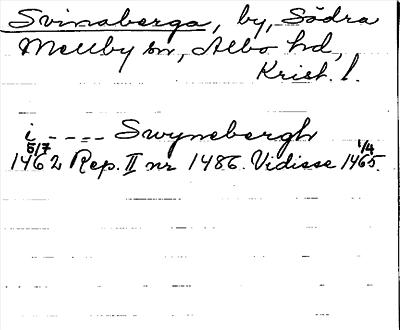 Svinaberga, by, Södra
Mellby sn, Albo hd,
Krist. l.
i ---- Swynebergh
1462 5/7 Rep. II nr 1486. Vidisse 1465 1/4.